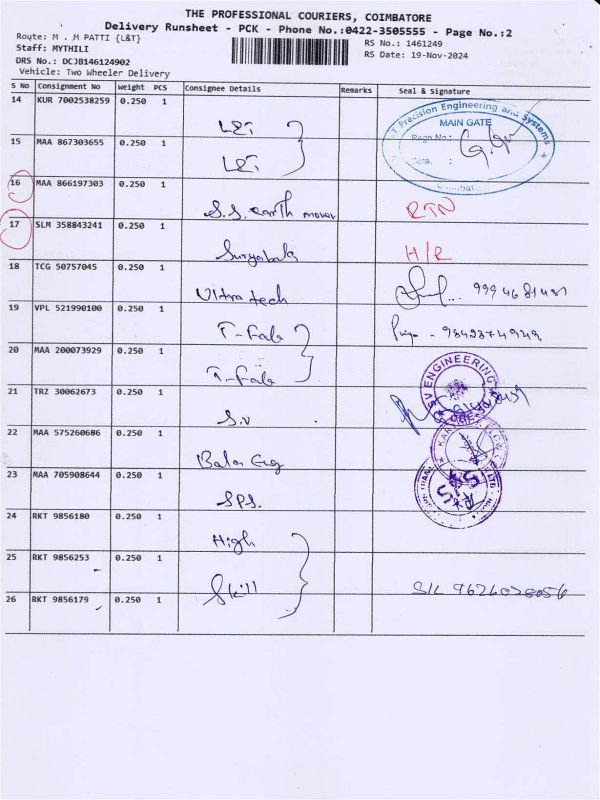 THE PROFESSIONAL COURIERS, COIMBATORE
Delivery Runsheet - PCK - Phone No.:0422-3505555 - Page No.:2
Route: M . M PATTI {L&T}
RS No.: 1461249
Staff: MYTHILI
RS Date: 19-Nov-2024
DRS No.: DCJB146124902
Vehicle: Two Wheeler Delivery
S No Consignment No Weight PCS Consignee Details Remarks Seal & Signature
14 KUR 7002538259 0.250 1 L&T
Precision Engineering and Systems
MAIN GATE
Regn No.:
Date. :
Coimbato
15 MAA 867303655 0.250 1 L&T
16 MAA 866197303 0.250 1 S.S. earth mover RTN
17 SLM 358843241 0.250 1 Suryabala H/R
18 TCG 50757045 0.250 1 Ultra tech 9994681481
19 VPL 521990100 0.250 1 T-Fab - 9842374949
20 MAA 200073929 0.250 1 T-Fab
SV ENGINEERING
21 TRZ 30062673 0.250 1 S.V
22 MAA 575260686 0.250 1 Balas Eng
23 MAA 705908644 0.250 1 SPS.
24 RKT 9856180 0.250 1 High
25 RKT 9856253 0.250 1 Skill
26 RKT 9856179 0.250 1 9626028056